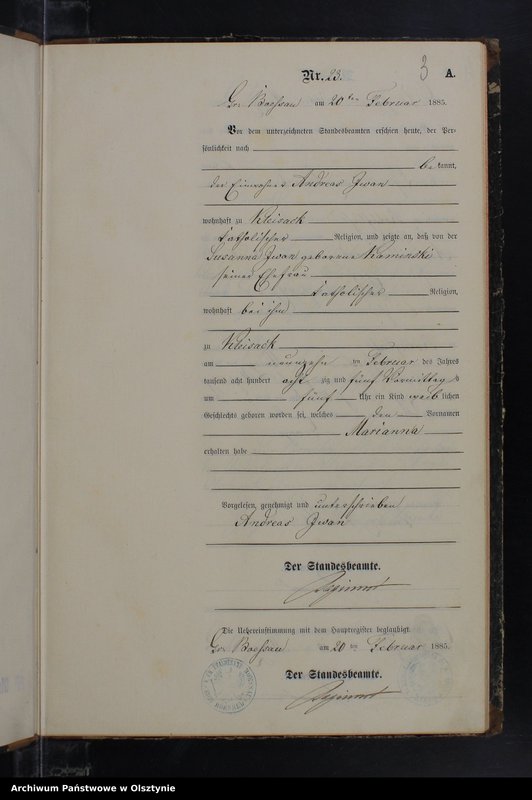 3
Nr. 23. A.
Gr. Boessau am 20ten Februar 1885.
Vor dem unterzeichneten Standesbeamten erschien heute, der Per-
sönlichkeit nach
bekannt,
der Einwohner Andreas Iwan
wohnhaft zu Kleisack
katholischer Religion, und zeigte an, daß von der
Susanna Iwan geborene Kaminski
seiner Ehefrau
katholischer Religion,
wohnhaft bei ihm
zu Kleisack
am neunzehn ten Februar des Jahres
tausend acht hundert acht zig und fünf Vormittags
um fünf Uhr ein Kind weiblichen
Geschlechts geboren worden sei, welches den Vornamen
Marianna
erhalten habe
Vorgelesen, genehmigt und unterschrieben
Andreas Iwan
Der Standesbeamte.
Die Uebereinstimmung mit dem Hauptregister beglaubigt.
Gr. Boessau am 20 ten Februar 1885.
Der Standesbeamte.
Archiwum Państwowe w Olsztynie